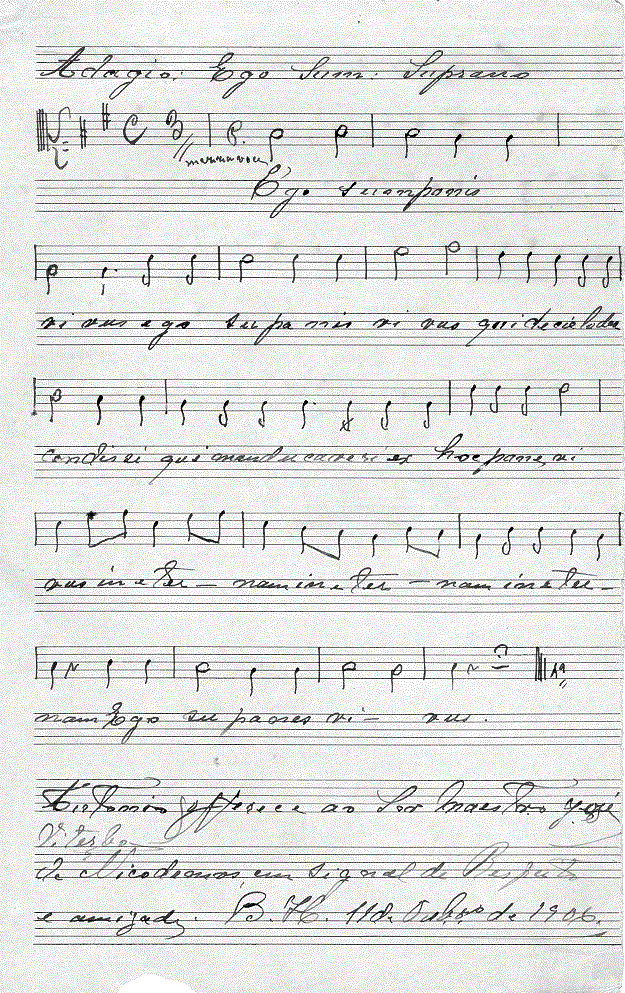 Adagio. Ego Sum. Suprano
C 3
Ego suonpanis
vi vus ego su panis vi vus qui de cielo des
condissi qui manducaveri ex hocpane, vi
vus in e ter – nam in e ter – nam in e ter –
nam Ego su panes vi – vus.
Antonio offerece ao Snr Maestro José
Viterbo
de Nicodemos em signal de Respeito
e amizade. B. H. 11 de Outbro de 1906.